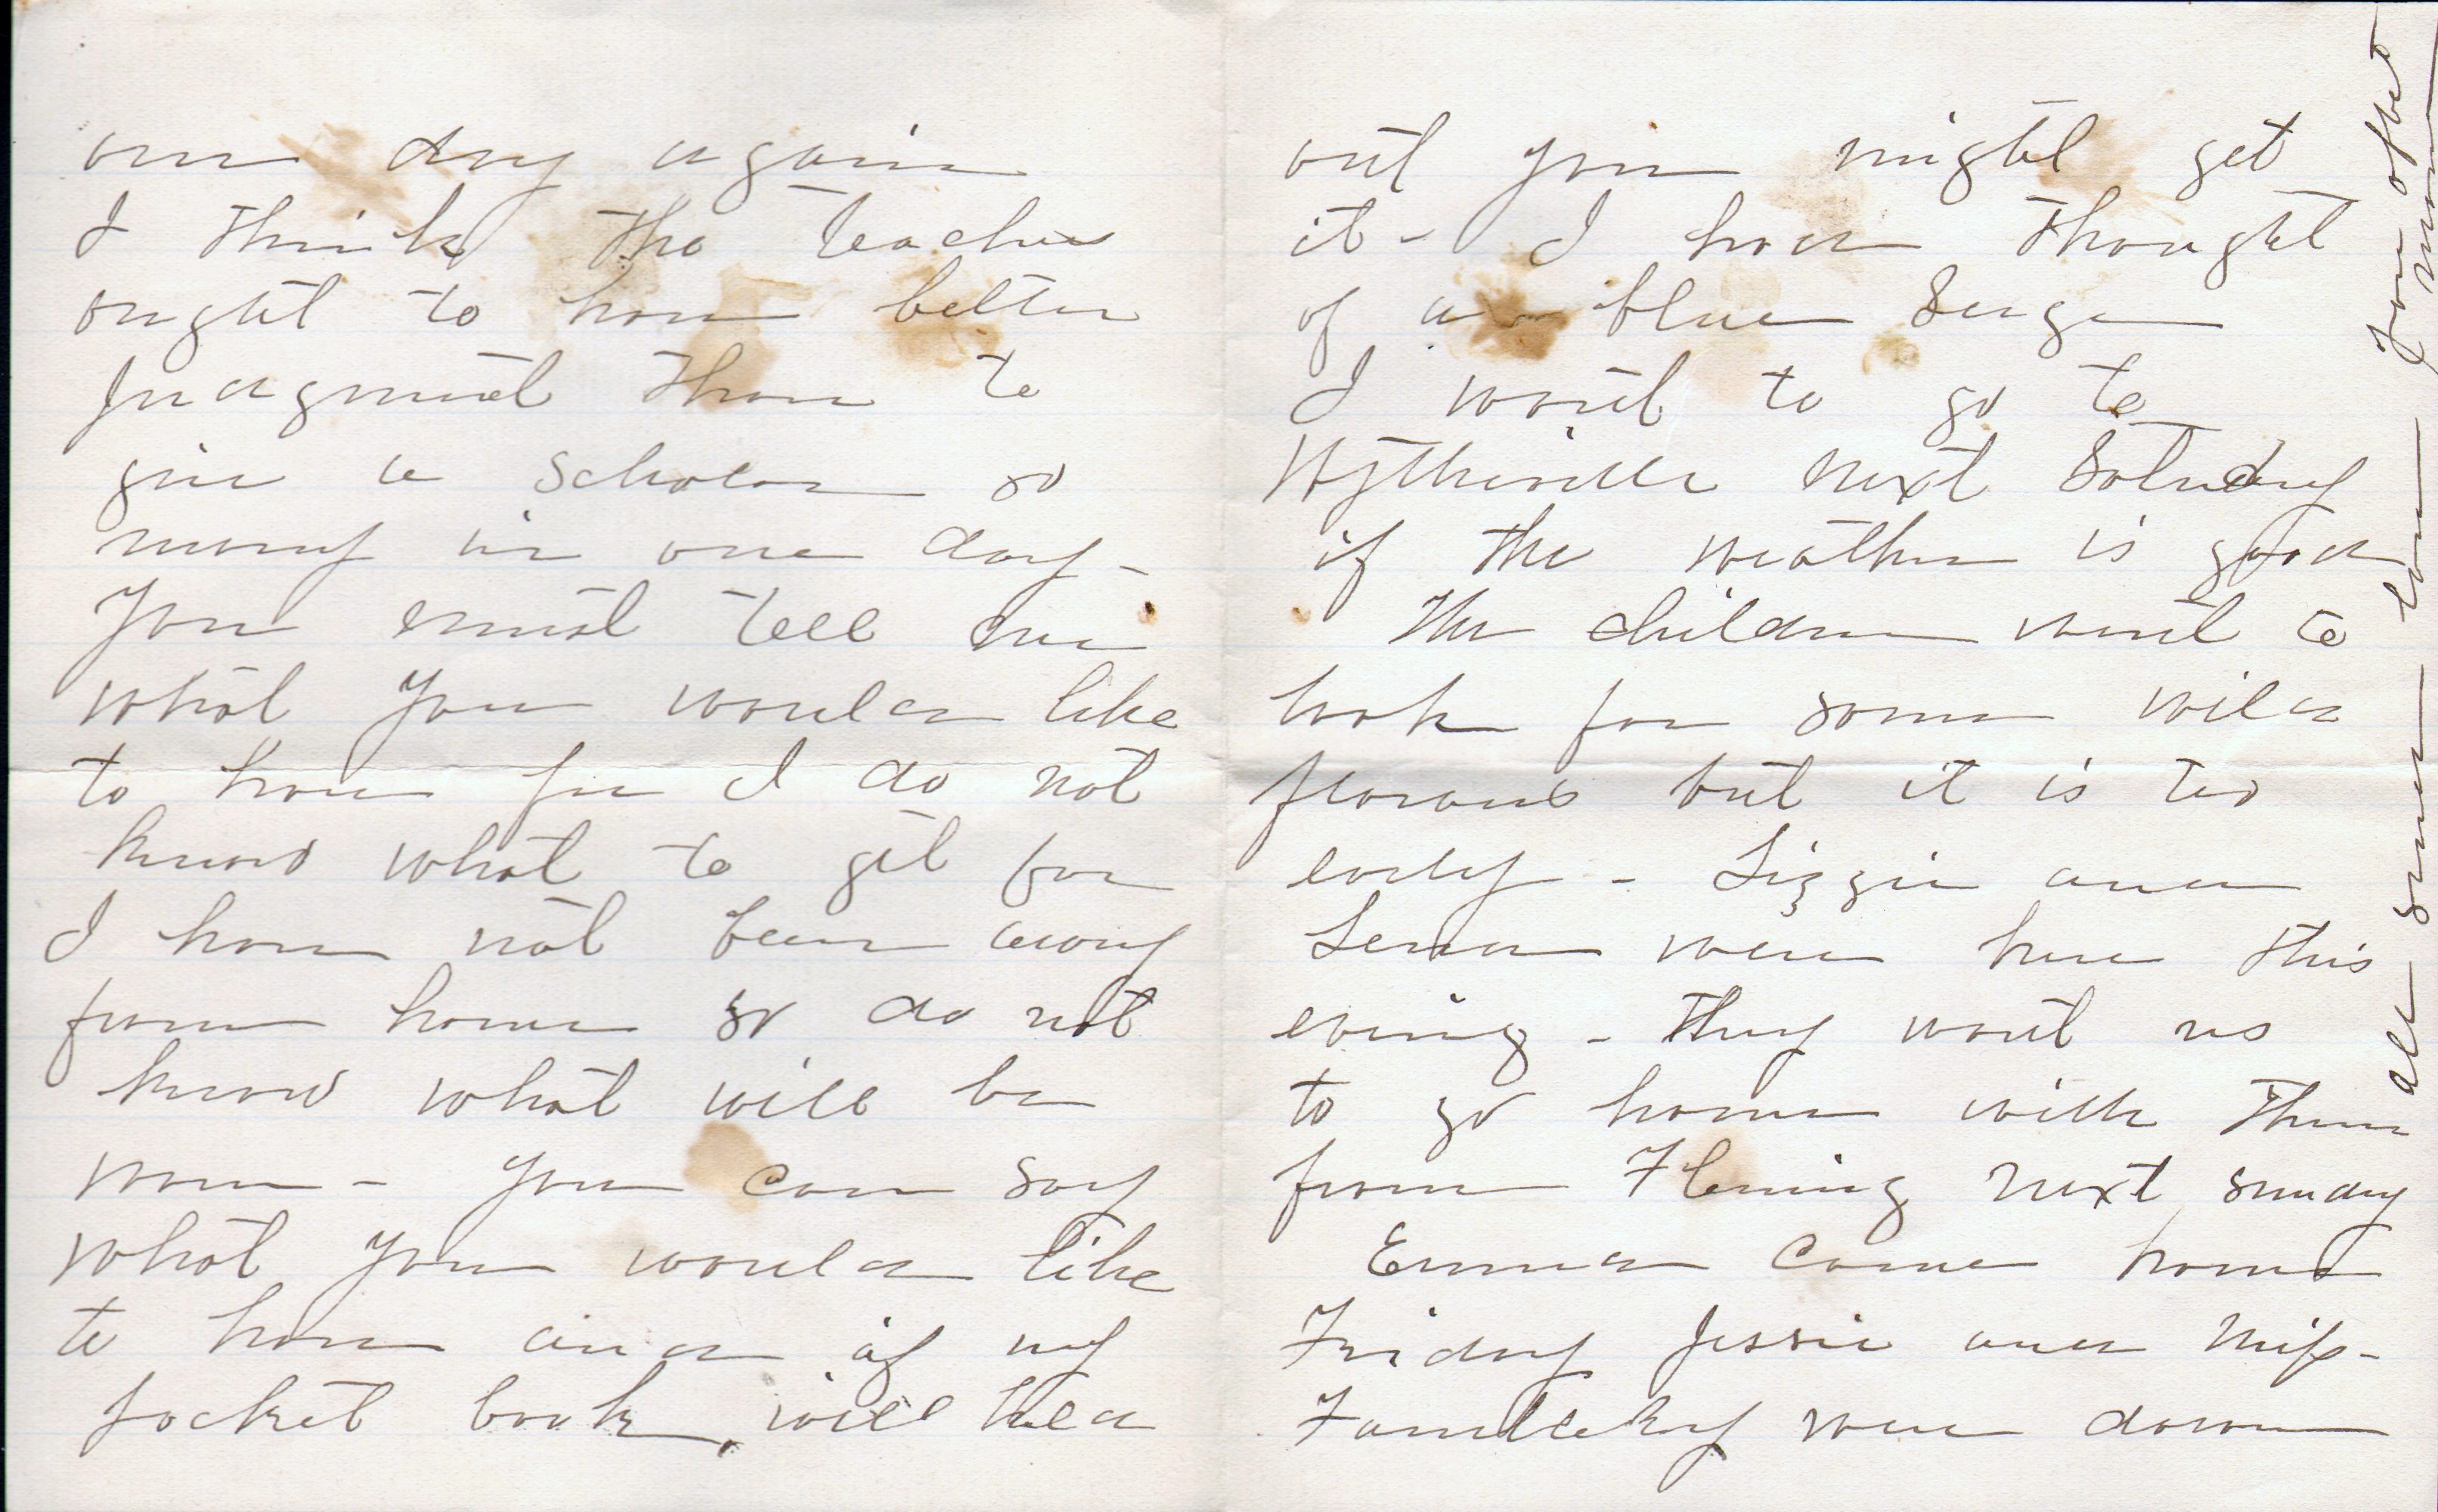 one day again
I think the teacher
ought to have better
Judgment than to
give a scholar so
many in one day -
You must tell me
what you would like
to have for I do not
know what to get for
I have not been away
from home so do not
know what will be
worn - you can say
what you would like
to have and if my
pocket book, will hold
out you might get
it - I had thought
of a blue Serge
I want to go to
Wytheville next Saturday
if the weather is good
The children went to
look for some wild
flowers but it is too
early - Lizzie and
Lena were here this
evening - They want us
to go home with them
from Fleming next sunday
Emma came home
Friday Jessie and Miss
were down
all send love Your affect
mama